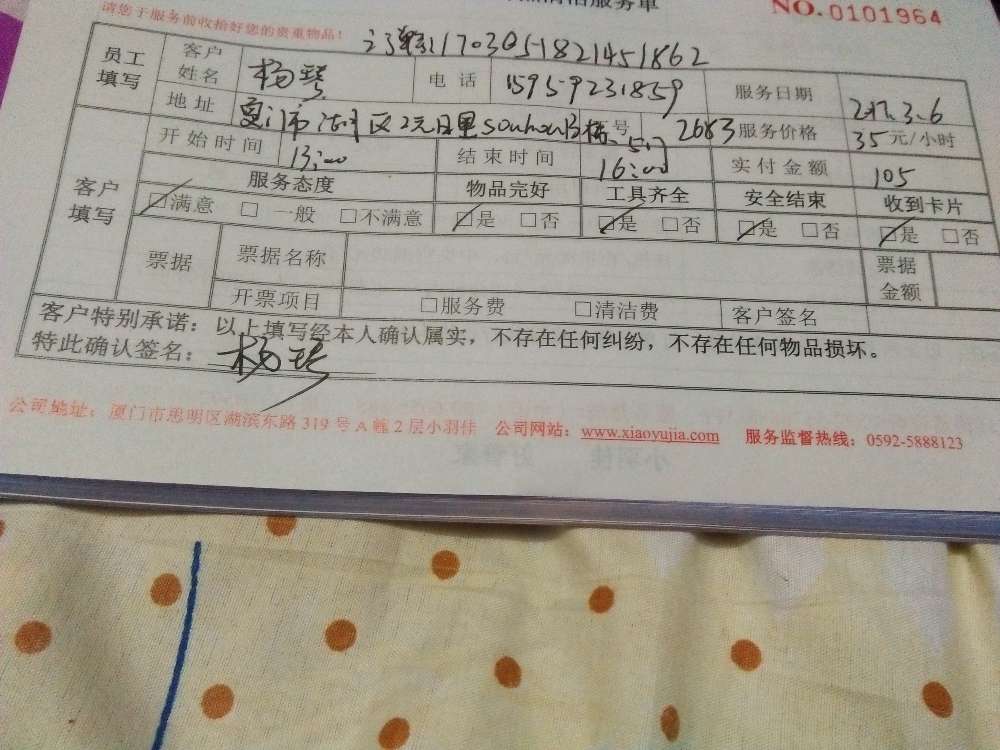 清洁服务单
NO.0101964
请您于服务前收拾好您的贵重物品!
1703051821451862
员工填写 客户姓名 杨琴 电话 15959231859 服务日期 2017.3.6
地址 厦门市 区 日 号 2683 服务价格 35元/小时
客户填写 开始时间 13:00 结束时间 16:00 实付金额 105
服务态度 物品完好 工具齐全 安全结束 收到卡片
☑满意 □一般 □不满意 ☑是 □否 ☑是 □否 ☑是 □否 ☑是 □否
票据 票据名称 票据金额
开票项目 □服务费 □清洁费 客户签名
客户特别承诺:以上填写经本人确认属实,不存在任何纠纷,不存在任何物品损坏。
特此确认签名:杨琴
公司地址:厦门市思明区湖滨东路319号A幢2层小羽佳 公司网站:www.xiaoyujia.com 服务监督热线:0592-5888123